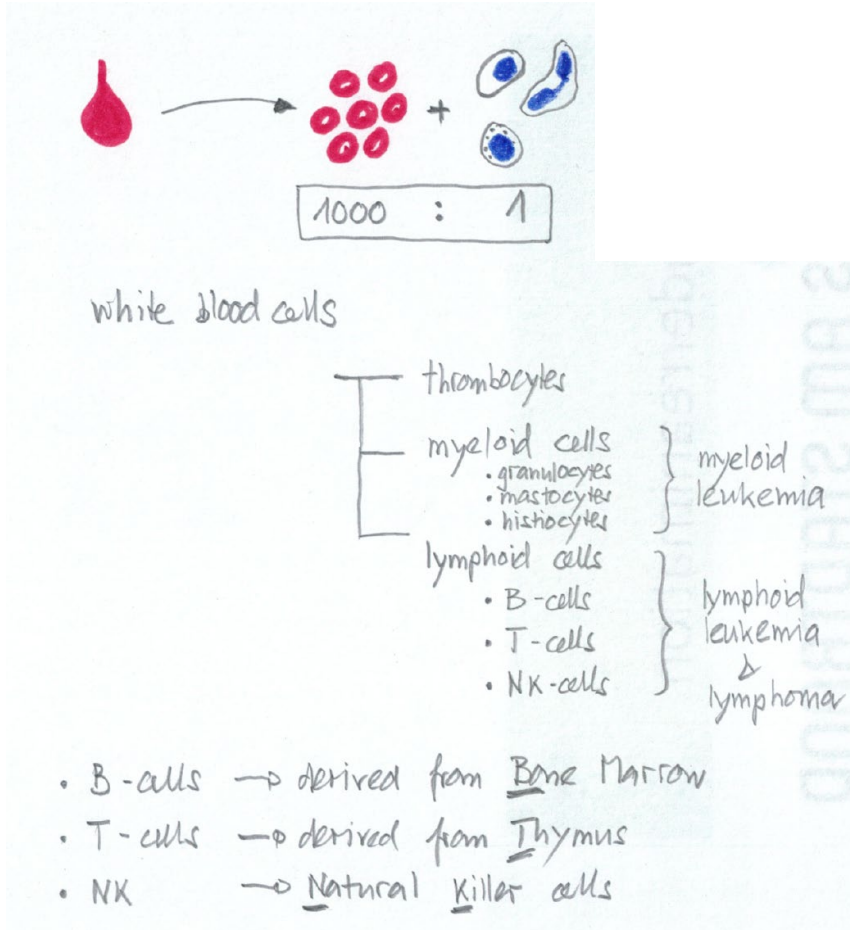 +
1000 : 1
white blood cells
thrombocytes
myeloid cells
• granulocytes
• mastocytes
• histiocytes
myeloid
leukemia
lymphoid cells
• B-cells
• T-cells
• NK-cells
lymphoid
leukemia
&
lymphoma
• B-cells → derived from Bone Marrow
• T-cells → derived from Thymus
• NK → Natural Killer cells